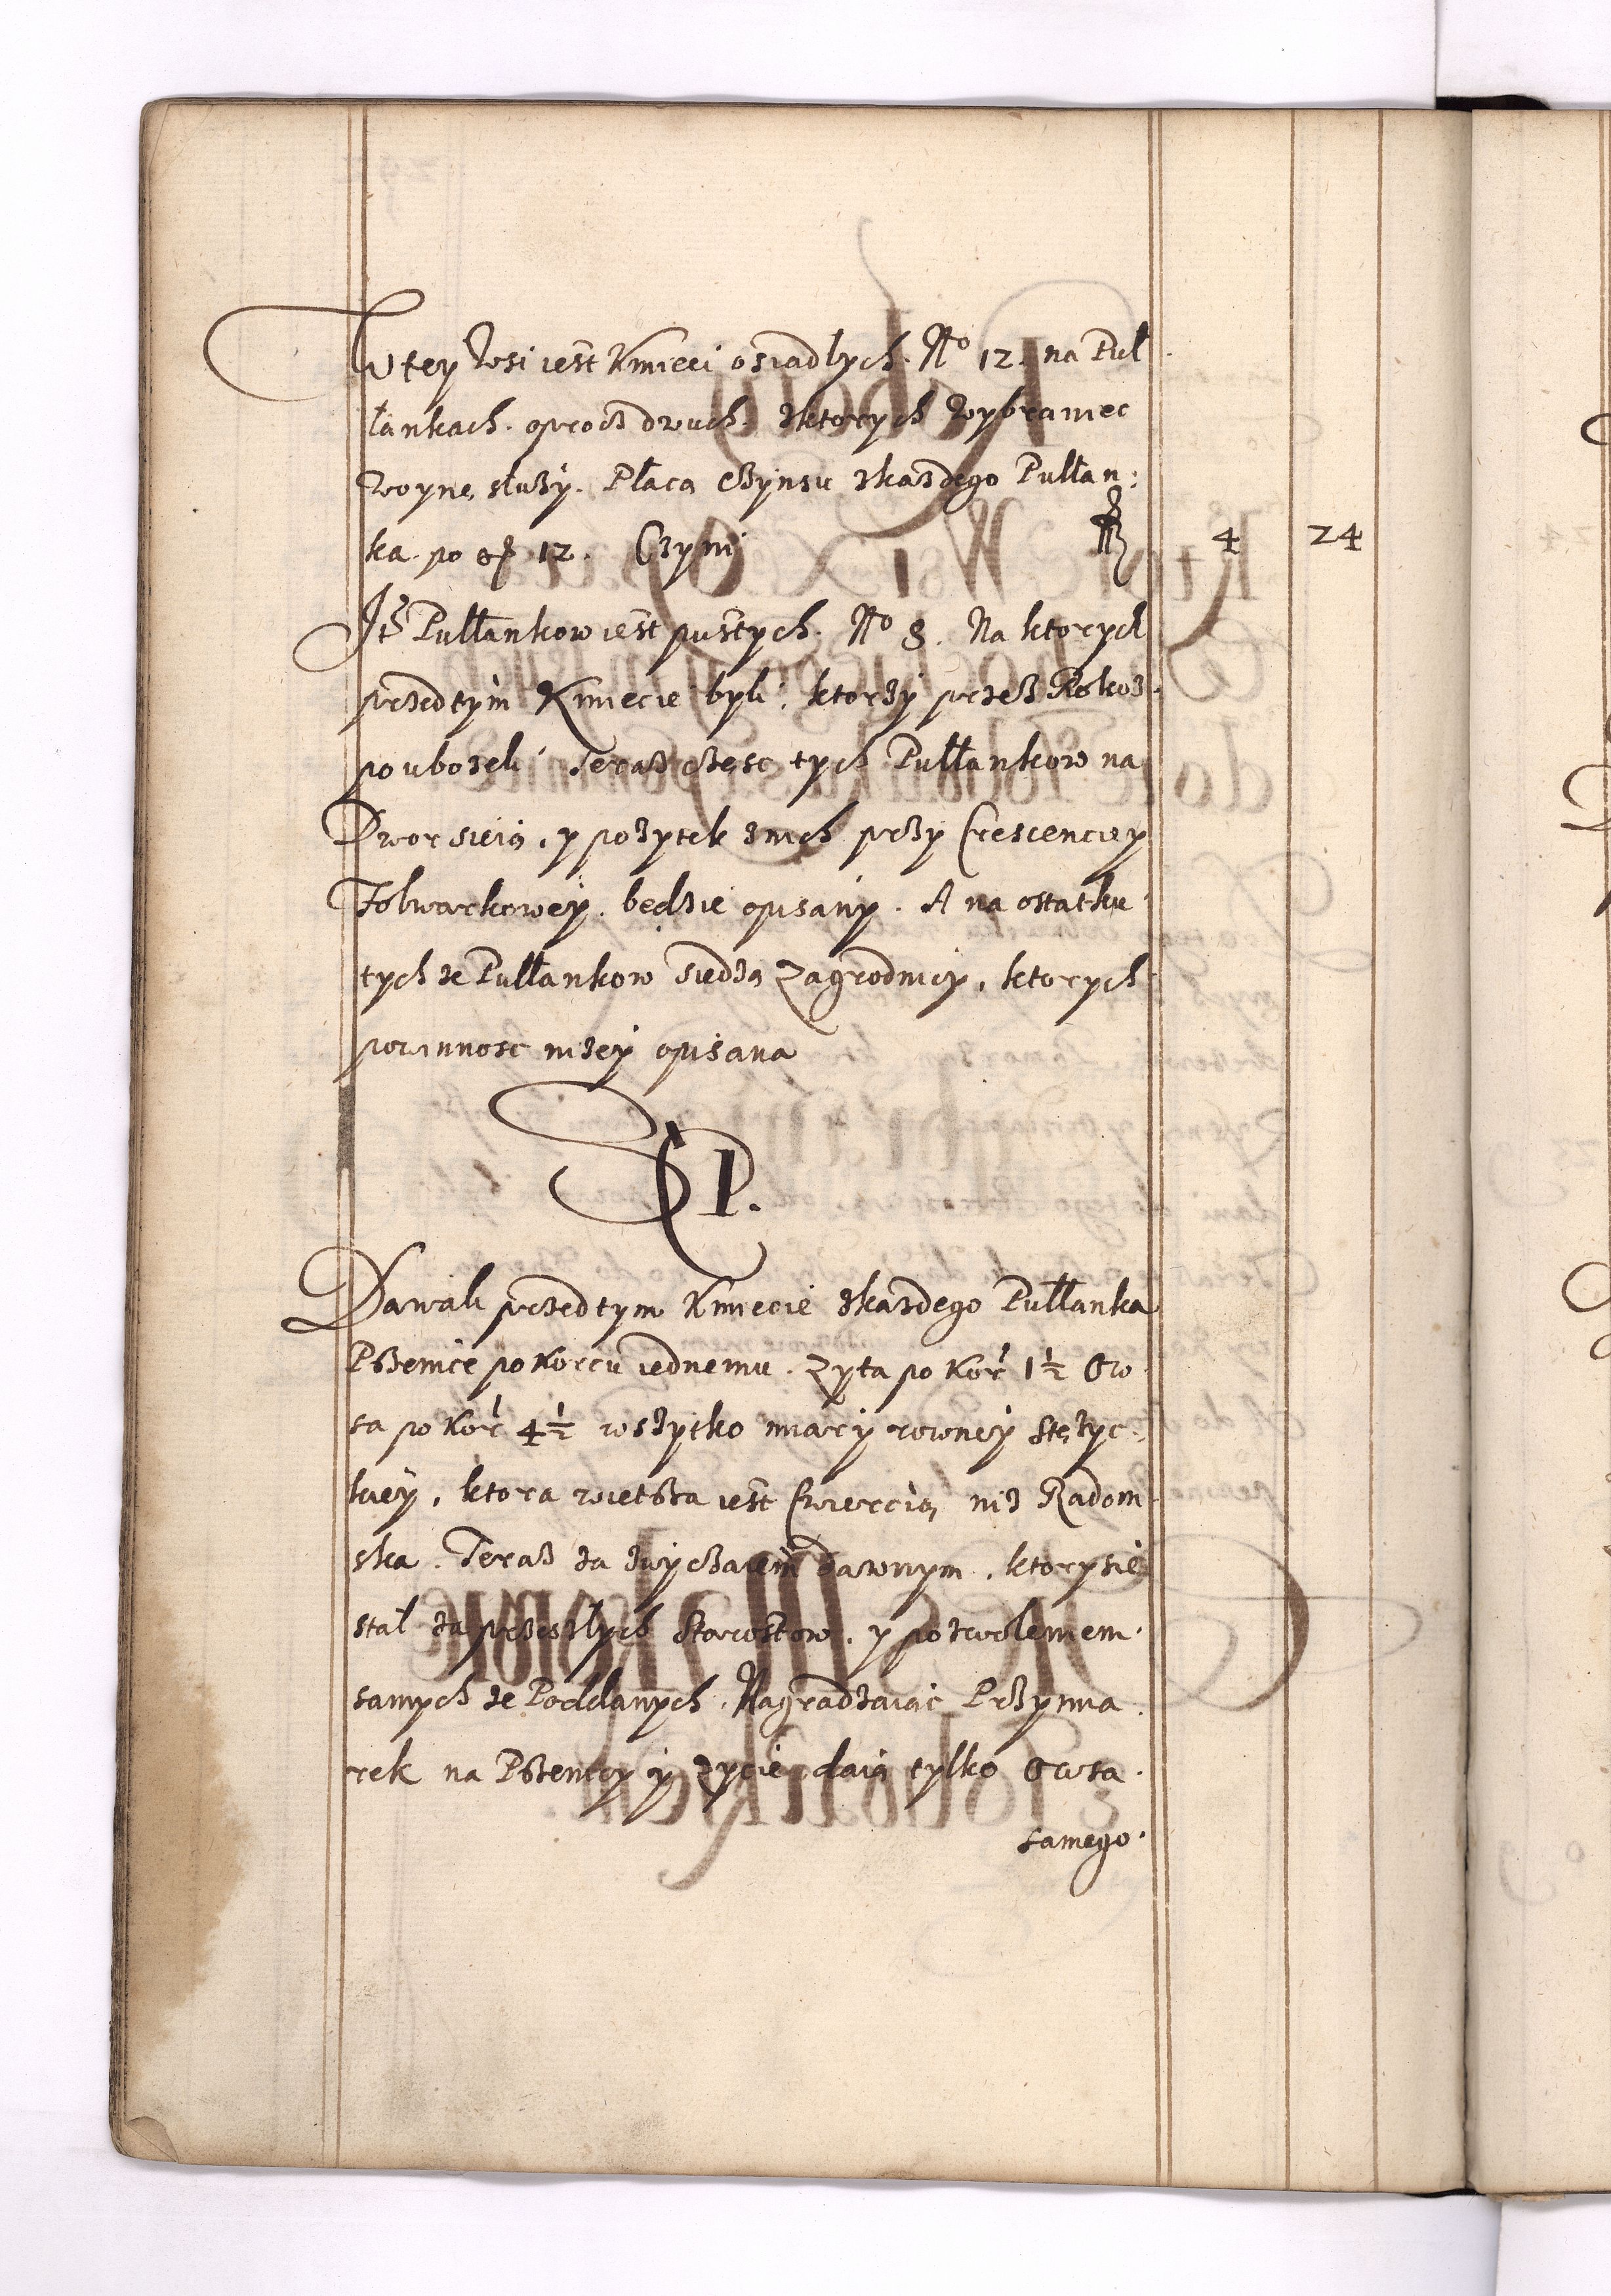 W tey Wsi iest Kmieci osiadłych. No 12. na Puł
łankach. oprocz dwuch. zktorych Wybraniec
Woynę słuzy. Płacą Czynsu zkazdego Pułłan:
ka po gr 12. Czyni fl 4 24
Itē Pułłankow iest pustych. No 8. Na ktorych
przedtym Kmiecie byli, ktorzy przez Rokosz
poubozeli. Teraz częsc tych Pułłankow na
Dwor sieią, y pozytek znich przy Crescenciey
Folwarkowey. będzie opisany. A na ostatku
tychze Pułłankow siedzą Zagrodnicy, ktorych
powinnosc nizey opisana
SP.
Dawali przedtym Kmiecie zkazdego Pułłanka
Pszenice po Korcu iednemu. Zyta po Kor 1½ Ow
sa po Kor 4½ wszytko miary rowney Stęzyc
kiey, ktora wietsza iest Cwiercią niz Radom
ska. Teraz za zwyczaiem dawnym, ktory sie
stał za przeszłych Starostow, y pozwoleniem
samych ze Poddanych, Nagradzaiąc Przyma
rek na Pszenicy y Zycie, daią tylko Owsa
samego